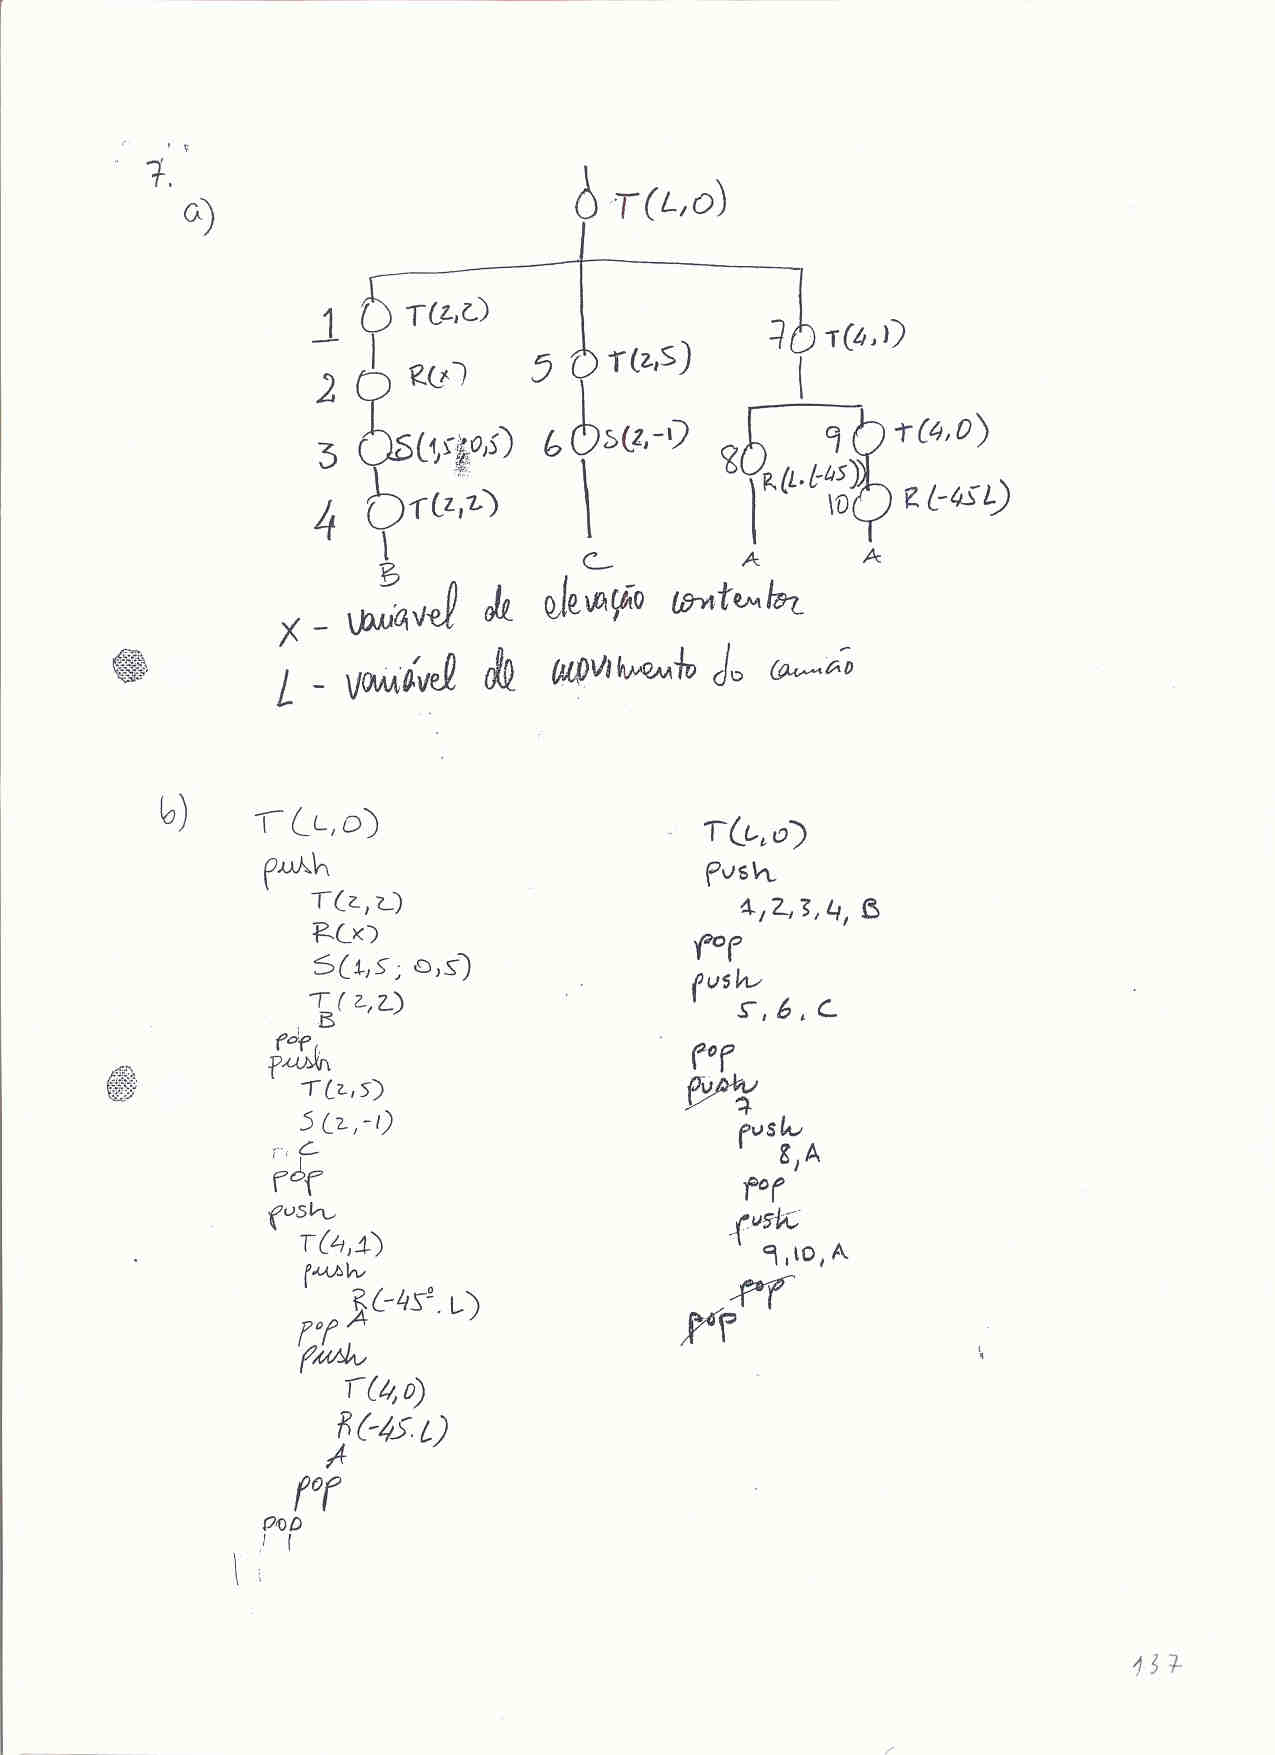 7.
a)
T(L,0)
1 T(2,2)
2 R(x)
3 S(1,5;0,5)
4 T(2,2)
B
5 T(2,5)
6 S(2,-1)
C
7 T(4,1)
8 R(L.(-45))
A
9 T(4,0)
10 R(-45L)
A
X - variavel de elevação contentor
L - variável de movimento do camião
b)
T(L,0)
push
T(2,2)
R(x)
S(1,5; 0,5)
T(2,2)
B
pop
push
T(2,5)
S(2,-1)
C
pop
push
T(4,1)
push
R(-45º.L)
A
pop
push
T(4,0)
R(-45.L)
A
pop
pop
T(L,0)
push
1,2,3,4, B
pop
push
5, 6, C
pop
push
7
push
8, A
pop
push
9,10, A
pop
pop
137